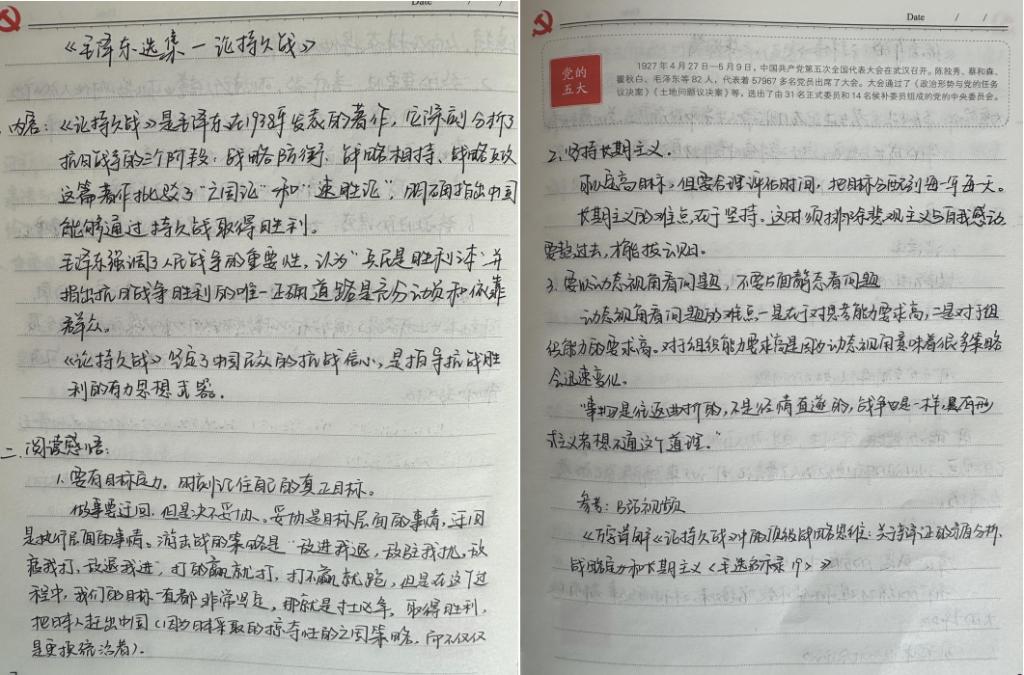 Date
《毛泽东选集—论持久战》
内容：《论持久战》是毛泽东在1938年发表的著作，它深刻分析了
抗日战争的三个阶段：战略防御、战略相持、战略反攻
这篇著作批驳了“亡国论”和“速胜论”，明确指出中国
能够通过持久战取得胜利。
毛泽东强调了人民战争的重要性，认为“兵民是胜利之本”并
指出抗日战争胜利的唯一正确道路是充分动员和依靠
群众。
《论持久战》坚定了中国民众的抗战信心，是指导抗战胜
利的有力思想武器。
二、阅读感悟：
1. 要有目标定力，时刻记住自己的真正目标。
做事要迂回，但是决不妥协。妥协是目标层面的事情，迂回
是执行层面的事情。游击战的策略是“敌进我退，敌驻我扰，敌
疲我打，敌退我进”，打的赢就打，打不赢就跑，但是在这个过
程中，我们的目标一直都非常坚定，那就是斗争，取得胜利，
把日本人赶出中国（因为日本采取的掠夺性的亡国策略，而不仅仅
是更换统治者）。
Date / /
党的
五大
1927年4月27日—5月9日，中国共产党第五次全国代表大会在武汉召开。陈独秀、蔡和森、
瞿秋白、毛泽东等82人，代表着57967多名党员出席了大会。大会通过了《政治形势与党的任务
议决案》《土地问题议决案》等，选出了由31名正式委员和14名候补委员组成的党的中央委员会。
2. 坚持长期主义。
可以定高目标，但要合理评估时间，把目标分配到每一年每一天。
长期主义的难点在于坚持。这时须排除悲观主义与自我感动
要熬过去，才能拨云见日。
3. 要以动态视角看问题，不要片面静态看问题
动态视角看问题的难点一是在于对思考能力要求高，二是对于组
织能力的要求高。对于组织能力要求高是因为动态视角意味着很多策略
会迅速变化。
“事物是往返曲折的，不是径情直遂的，战争也是一样，只有形
式主义者想不通这个道理。”
参考：B站视频
《万字详解《论持久战》中的顶级战略思维：关于辩证的矛盾分析，
战略定力和长期主义《毛选》》